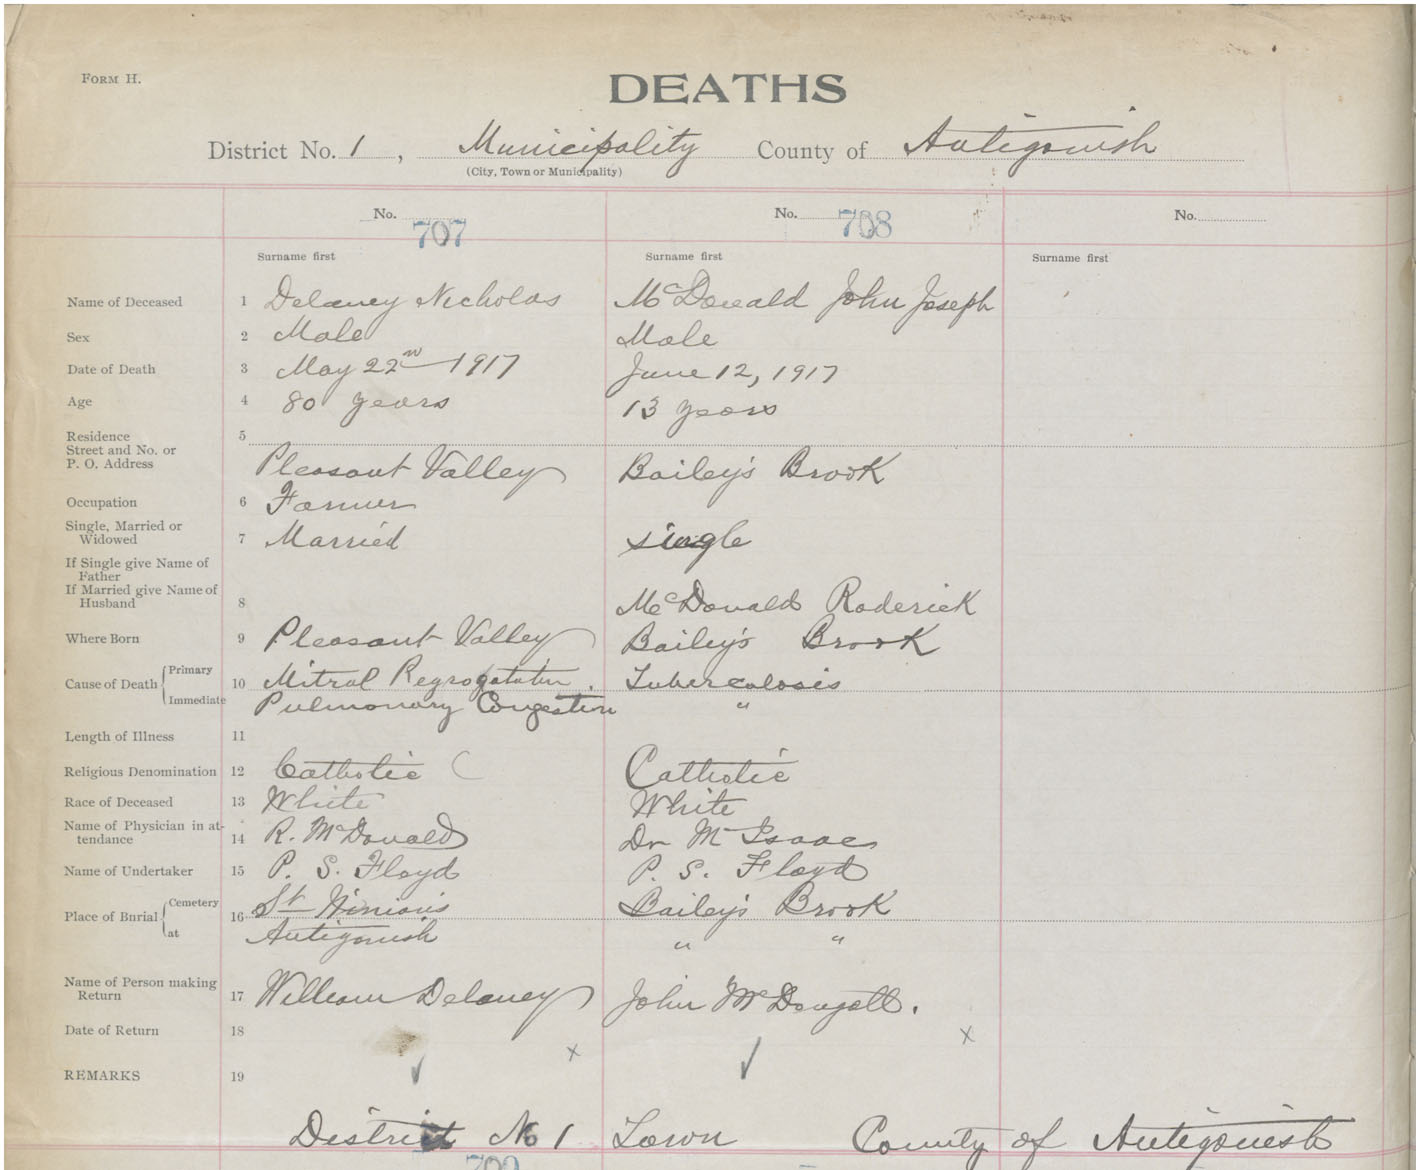 FORM H.
DEATHS
District No. 1, Municipality County of Antigonish
(City, Town or Municipality)
No. 707 No. 708 No.
Surname first Surname first Surname first
Name of Deceased 1 Delaney Nicholas McDonald John Joseph
Sex 2 Male Male
Date of Death 3 May 22nd 1917 June 12, 1917
Age 4 80 years 13 years
Residence 5
Street and No. or
P. O. Address Pleasant Valley Bailey's Brook
Occupation 6 Farmer
Single, Married or
Widowed 7 Married single
If Single give Name of
Father
If Married give Name of
Husband 8 McDonald Roderick
Where Born 9 Pleasant Valley Bailey's Brook
Cause of Death Primary 10 Mitral Tuberculosis
Immediate Pulmonary Congestion "
Length of Illness 11
Religious Denomination 12 Catholic Catholic
Race of Deceased 13 White White
Name of Physician in at-
tendance 14 R. McDonald Dr McIsaac
Name of Undertaker 15 P. S. Floyd P. S. Floyd
Place of Burial Cemetery 16 St Ninian's Bailey's Brook
at Antigonish " "
Name of Person making
Return 17 William Delaney John McDougall.
Date of Return 18 x
x
REMARKS 19 ✓ ✓
District No 1 Town County of Antigonish
709